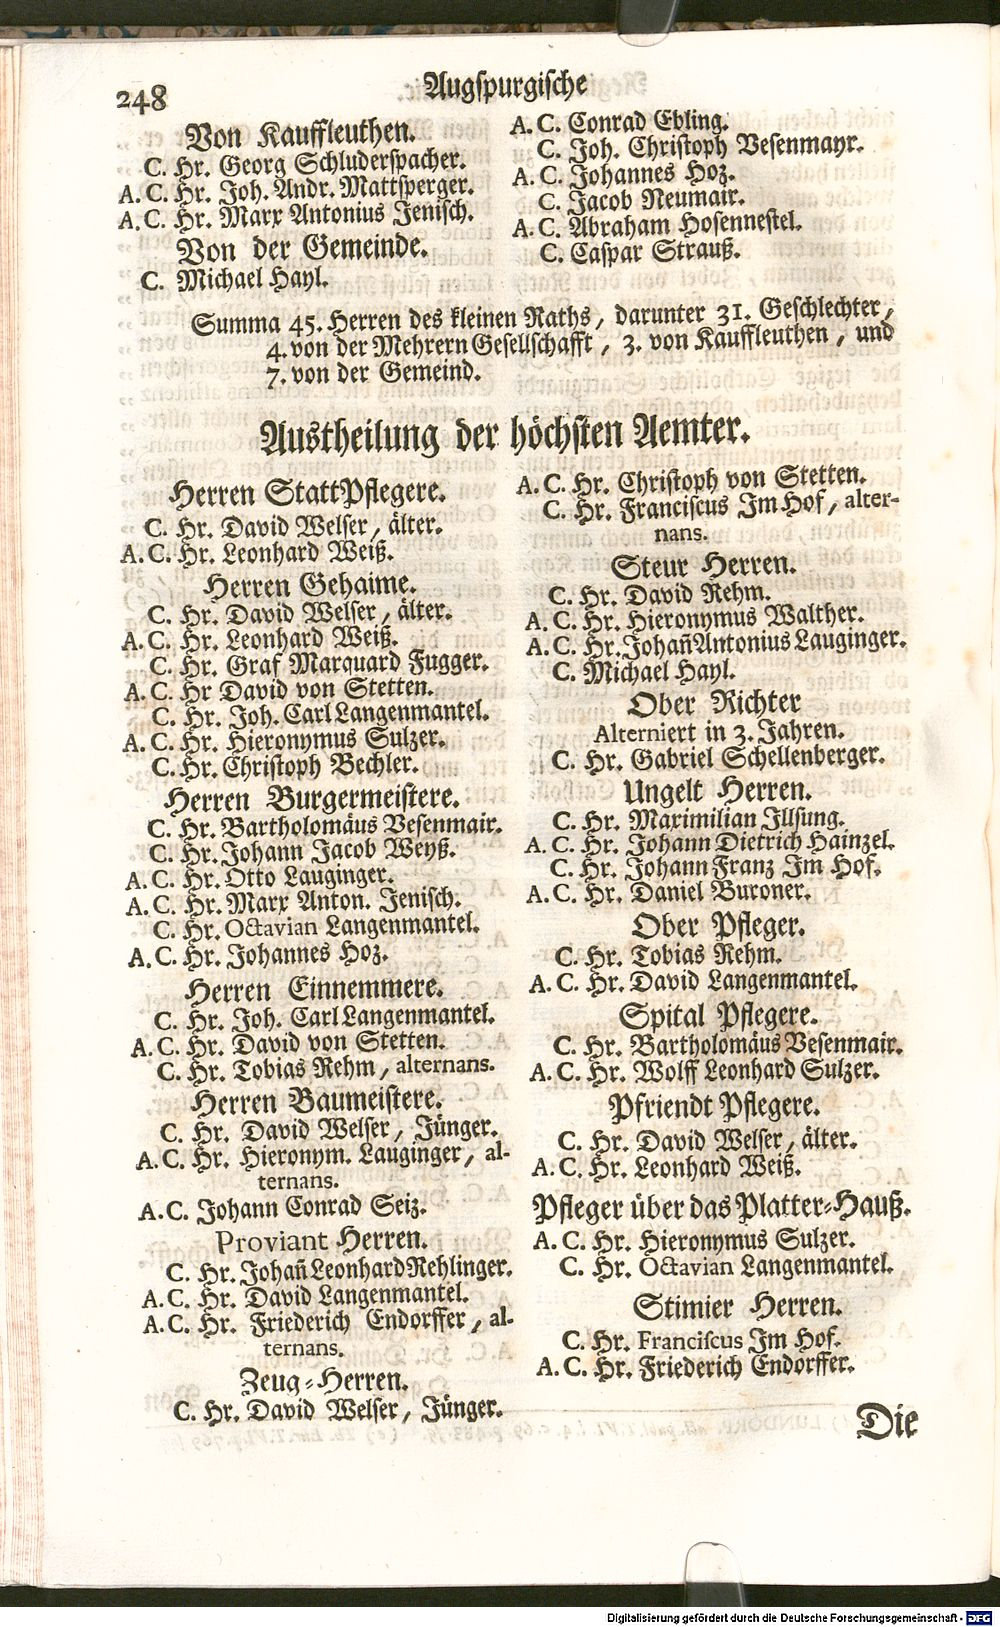 248
Augspurgische
Von Kauffleuthen.
C. Hr. Georg Schluderspacher.
A. C. Hr. Joh. Andr. Mattsperger.
A. C. Hr. Marx Antonius Jenisch.
Von der Gemeinde.
C. Michael Hayl.
A. C. Conrad Ebling.
C. Joh. Christoph Vesenmayr.
A. C. Johannes Hoz.
C. Jacob Neumair.
A. C. Abraham Hosennestel.
C. Caspar Strauß.
Summa 45. Herren des kleinen Raths, darunter 31. Geschlechter,
4. von der Mehrern Gesellschafft, 3. von Kauffleuthen, und
7. von der Gemeind.
Austheilung der höchsten Aemter.
Herren StattPflegere.
C. Hr. David Welser, älter.
A. C. Hr. Leonhard Weiß.
Herren Gehaime.
C. Hr. David Welser, älter.
A. C. Hr. Leonhard Weiß.
C. Hr. Graf Marquard Fugger.
A. C. Hr David von Stetten.
C. Hr. Joh. Carl Langenmantel.
A. C. Hr. Hieronymus Sulzer.
C. Hr. Christoph Bechler.
Herren Burgermeistere.
C. Hr. Bartholomäus Vesenmair.
C. Hr. Johann Jacob Weyß.
A. C. Hr. Otto Lauginger.
A. C. Hr. Marx Anton. Jenisch.
C. Hr. Octavian Langenmantel.
A. C. Hr. Johannes Hoz.
Herren Einnemmere.
C. Hr. Joh. Carl Langenmantel.
A. C. Hr. David von Stetten.
C. Hr. Tobias Rehm, alternans.
Herren Baumeistere.
C. Hr. David Welser, Jünger.
A. C. Hr. Hieronym. Lauginger, al-
ternans.
A. C. Johann Conrad Seiz.
Proviant Herren.
C. Hr. Johañ Leonhard Rehlinger.
A. C. Hr. David Langenmantel.
A. C. Hr. Friederich Endorffer, al-
ternans.
Zeug-Herren.
C. Hr. David Welser, Jünger.
A. C. Hr. Christoph von Stetten.
C. Hr. Franciscus Im Hof, alter-
nans.
Steur Herren.
C. Hr. David Rehm.
A. C. Hr. Hieronymus Walther.
A. C. Hr. Johañ Antonius Lauginger.
C. Michael Hayl.
Ober Richter
Alterniert in 3. Jahren.
C. Hr. Gabriel Schellenberger.
Ungelt Herren.
C. Hr. Maximilian Illsung.
A. C. Hr. Johann Dietrich Hainzel.
C. Hr. Johann Franz Im Hof.
A. C. Hr. Daniel Buroner.
Ober Pfleger.
C. Hr. Tobias Rehm.
A. C. Hr. David Langenmantel.
Spital Pflegere.
C. Hr. Bartholomäus Vesenmair.
A. C. Hr. Wolff Leonhard Sulzer.
Pfriendt Pflegere.
C. Hr. David Welser, älter.
A. C. Hr. Leonhard Weiß.
Pfleger über das Platter-Hauß.
A. C. Hr. Hieronymus Sulzer.
C. Hr. Octavian Langenmantel.
Stimier Herren.
C. Hr. Franciscus Im Hof.
A. C. Hr. Friederich Endorffer.
Die
Digitalisierung gefördert durch die Deutsche Forschungsgemeinschaft - DFG